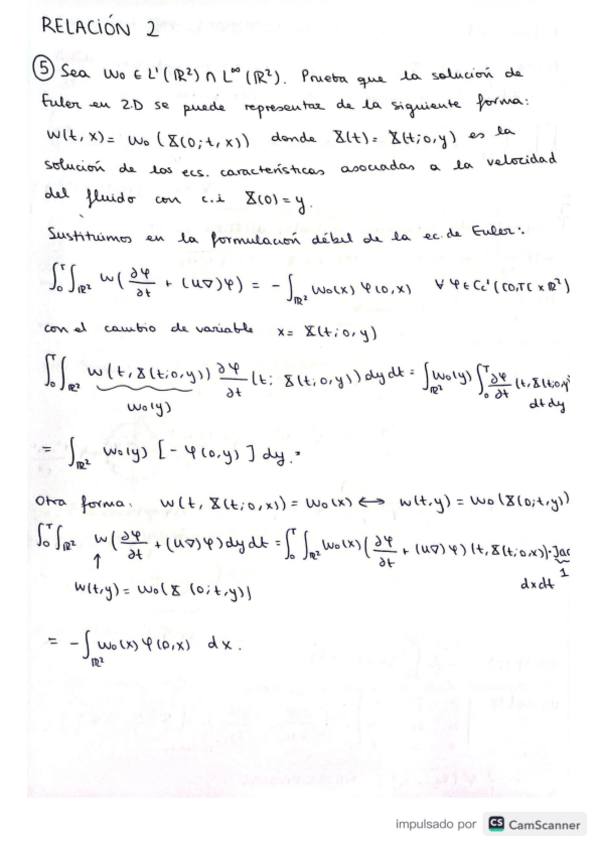 RELACIÓN 2
⑤ Sea W₀ ∈ L¹(ℝ²) ∩ L^∞(ℝ²). Prueba que la solución de
Euler en 2D se puede representar de la siguiente forma:
W(t, x) = W₀(X(0; t, x)) donde X(t) = X(t; 0, y) es la
solución de las ecs. características asociadas a la velocidad
del fluido con c.i X(0) = y.
Sustituimos en la formulación débil de la ec. de Euler:
∫₀ᵀ∫_ℝ² W(∂φ/∂t + (u∇)φ) = -∫_ℝ² W₀(x) φ(0,x) ∀φ ∈ Cc¹([0,T[ × ℝ²)
con el cambio de variable x = X(t; 0, y)
∫₀ᵀ∫_ℝ² W(t, X(t; 0, y)) ∂φ/∂t (t; X(t; 0, y)) dy dt = ∫_ℝ² W₀(y) ∫₀ᵀ ∂φ/∂t (t, X(t; 0, y)
W₀(y)
dt dy
= ∫_ℝ² W₀(y) [-φ(0, y)] dy.
Otra forma. W(t, X(t; 0, x)) = W₀(x) ⟷ W(t, y) = W₀(X(0; t, y))
∫₀ᵀ∫_ℝ² W(∂φ/∂t + (u∇)φ) dy dt = ∫₀ᵀ∫_ℝ² W₀(x)(∂φ/∂t + (u∇)φ)(t, X(t; 0, x))·Jac
↑
1
W(t, y) = W₀(X(0; t, y))
dx dt
= -∫_ℝ² W₀(x) φ(0, x) dx.
impulsado por CS CamScanner